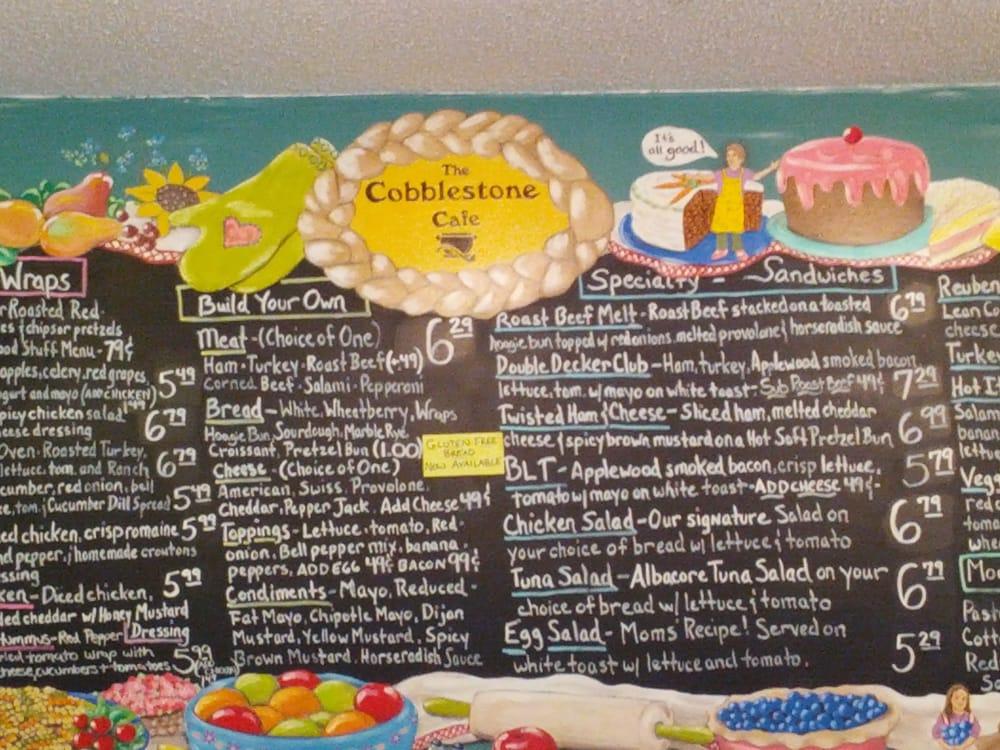 It's
all good!
The
Cobblestone
Cafe
Wraps
r Roasted Red
es & chips or pretzels
od Stuff Menu - 79¢
apples, celery, red grapes,
gurt and mayo (ADD CHICKEN) 5.49
picy chicken salad
eese dressing 6.79
Oven Roasted Turkey,
lettuce, tom, and Ranch 6.79
cumber, red onion, bell
ce, tom, & Cucumber Dill Spread 5.49
ed chicken, crisp romaine 5.99
nd pepper, & homemade croutons
ssing
ken - Diced chicken, 5.99
ded cheddar w/ Honey Mustard
Hummus - Red Pepper Dressing
tomato wrap with
cheese, cucumbers & tomatoes 5.99
Build Your Own
Meat - (Choice of One) 6.29
Ham - Turkey - Roast Beef (+.49)
Corned Beef - Salami - Pepperoni
Bread - White, Wheatberry, Wraps
Hoagie Bun, Sourdough, Marble Rye
Croissant, Pretzel Bun (1.00)
Cheese - (Choice of One)
American, Swiss, Provolone,
Cheddar, Pepper Jack, Add Cheese 49¢
Toppings - Lettuce, tomato, Red
onion, Bell pepper mix, banana
peppers, ADD EGG 49¢ BACON 99¢
Condiments - Mayo, Reduced
Fat Mayo, Chipotle Mayo, Dijan
Mustard, Yellow Mustard, Spicy
Brown Mustard, Horseradish Sauce
GLUTEN FREE
BREAD
NOW AVAILABLE
Specialty - Sandwiches
Roast Beef Melt - Roast Beef stacked on a toasted 6.79
hoagie bun topped w/ red onions, melted provolone & horseradish sauce
Double Decker Club - Ham, turkey, Applewood smoked bacon,
lettuce, tom. w/ mayo on white toast - Sub Roast Beef 49¢ 7.29
Twisted Ham & Cheese - Sliced ham, melted cheddar
cheese & spicy brown mustard on a Hot Soft Pretzel Bun 6.99
BLT - Applewood smoked bacon, crisp lettuce, 5.79
tomato w/ mayo on white toast - ADD CHEESE 49¢ -
Chicken Salad - Our signature Salad on 6.79
your choice of bread w/ lettuce & tomato
Tuna Salad - Albacore Tuna Salad on your 6.79
choice of bread w/ lettuce & tomato
Egg Salad - Moms' Recipe! Served on 5.29
white toast w/ lettuce and tomato.
Reuben
Lean Co
cheese
Turke
Hot I
Salam
banan
lettu
Vegg
red
toma
whe
Mo
Past
Cott
Red
Sa